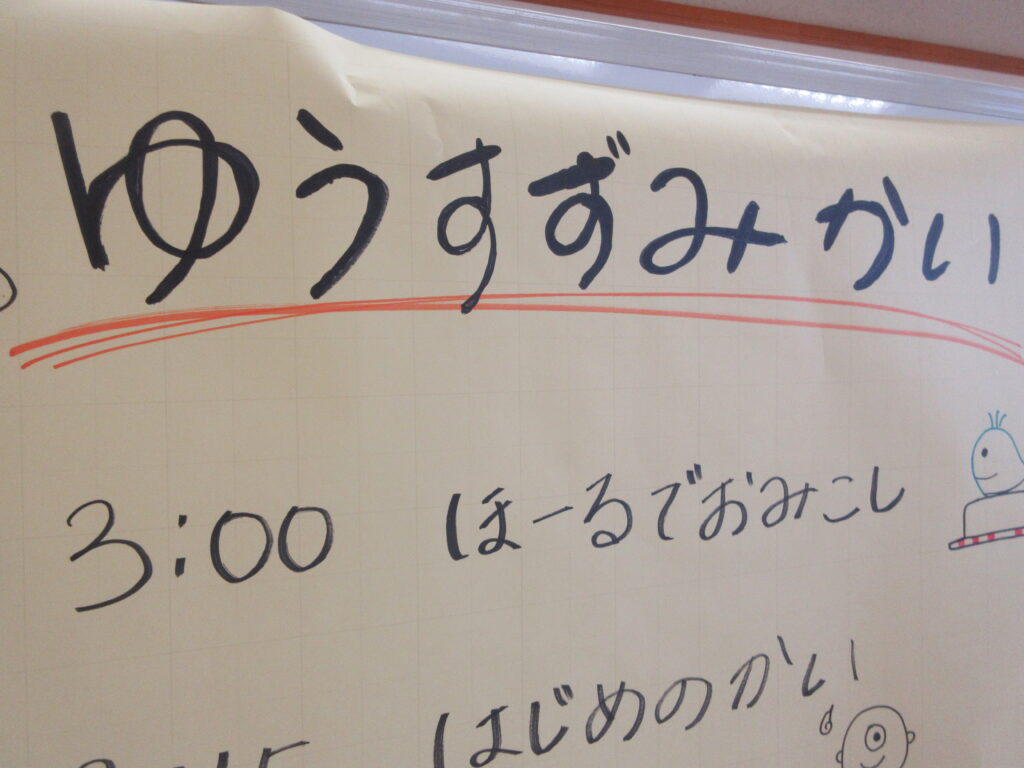 ゆうすずみかい
3:00 ほーるでおみこし
はじめのかい